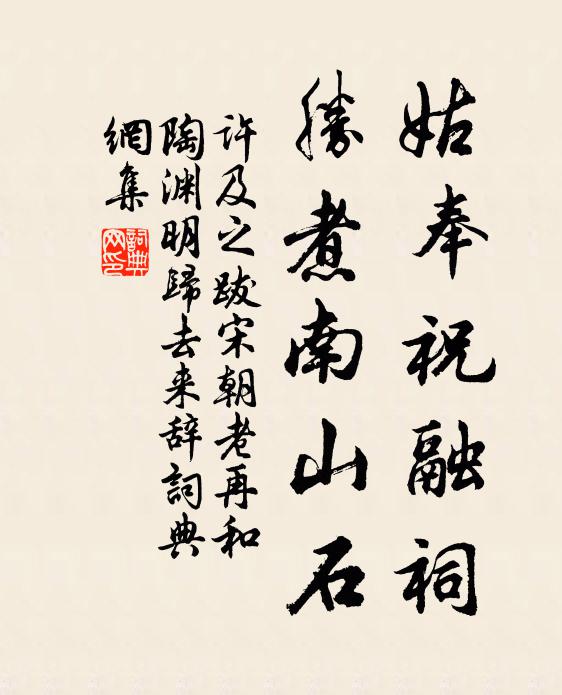 姑奉祝融祠
勝煮南山石
许及之跋宋朝老再和
陶渊明歸去来辞詞典
網集
詞典
网印